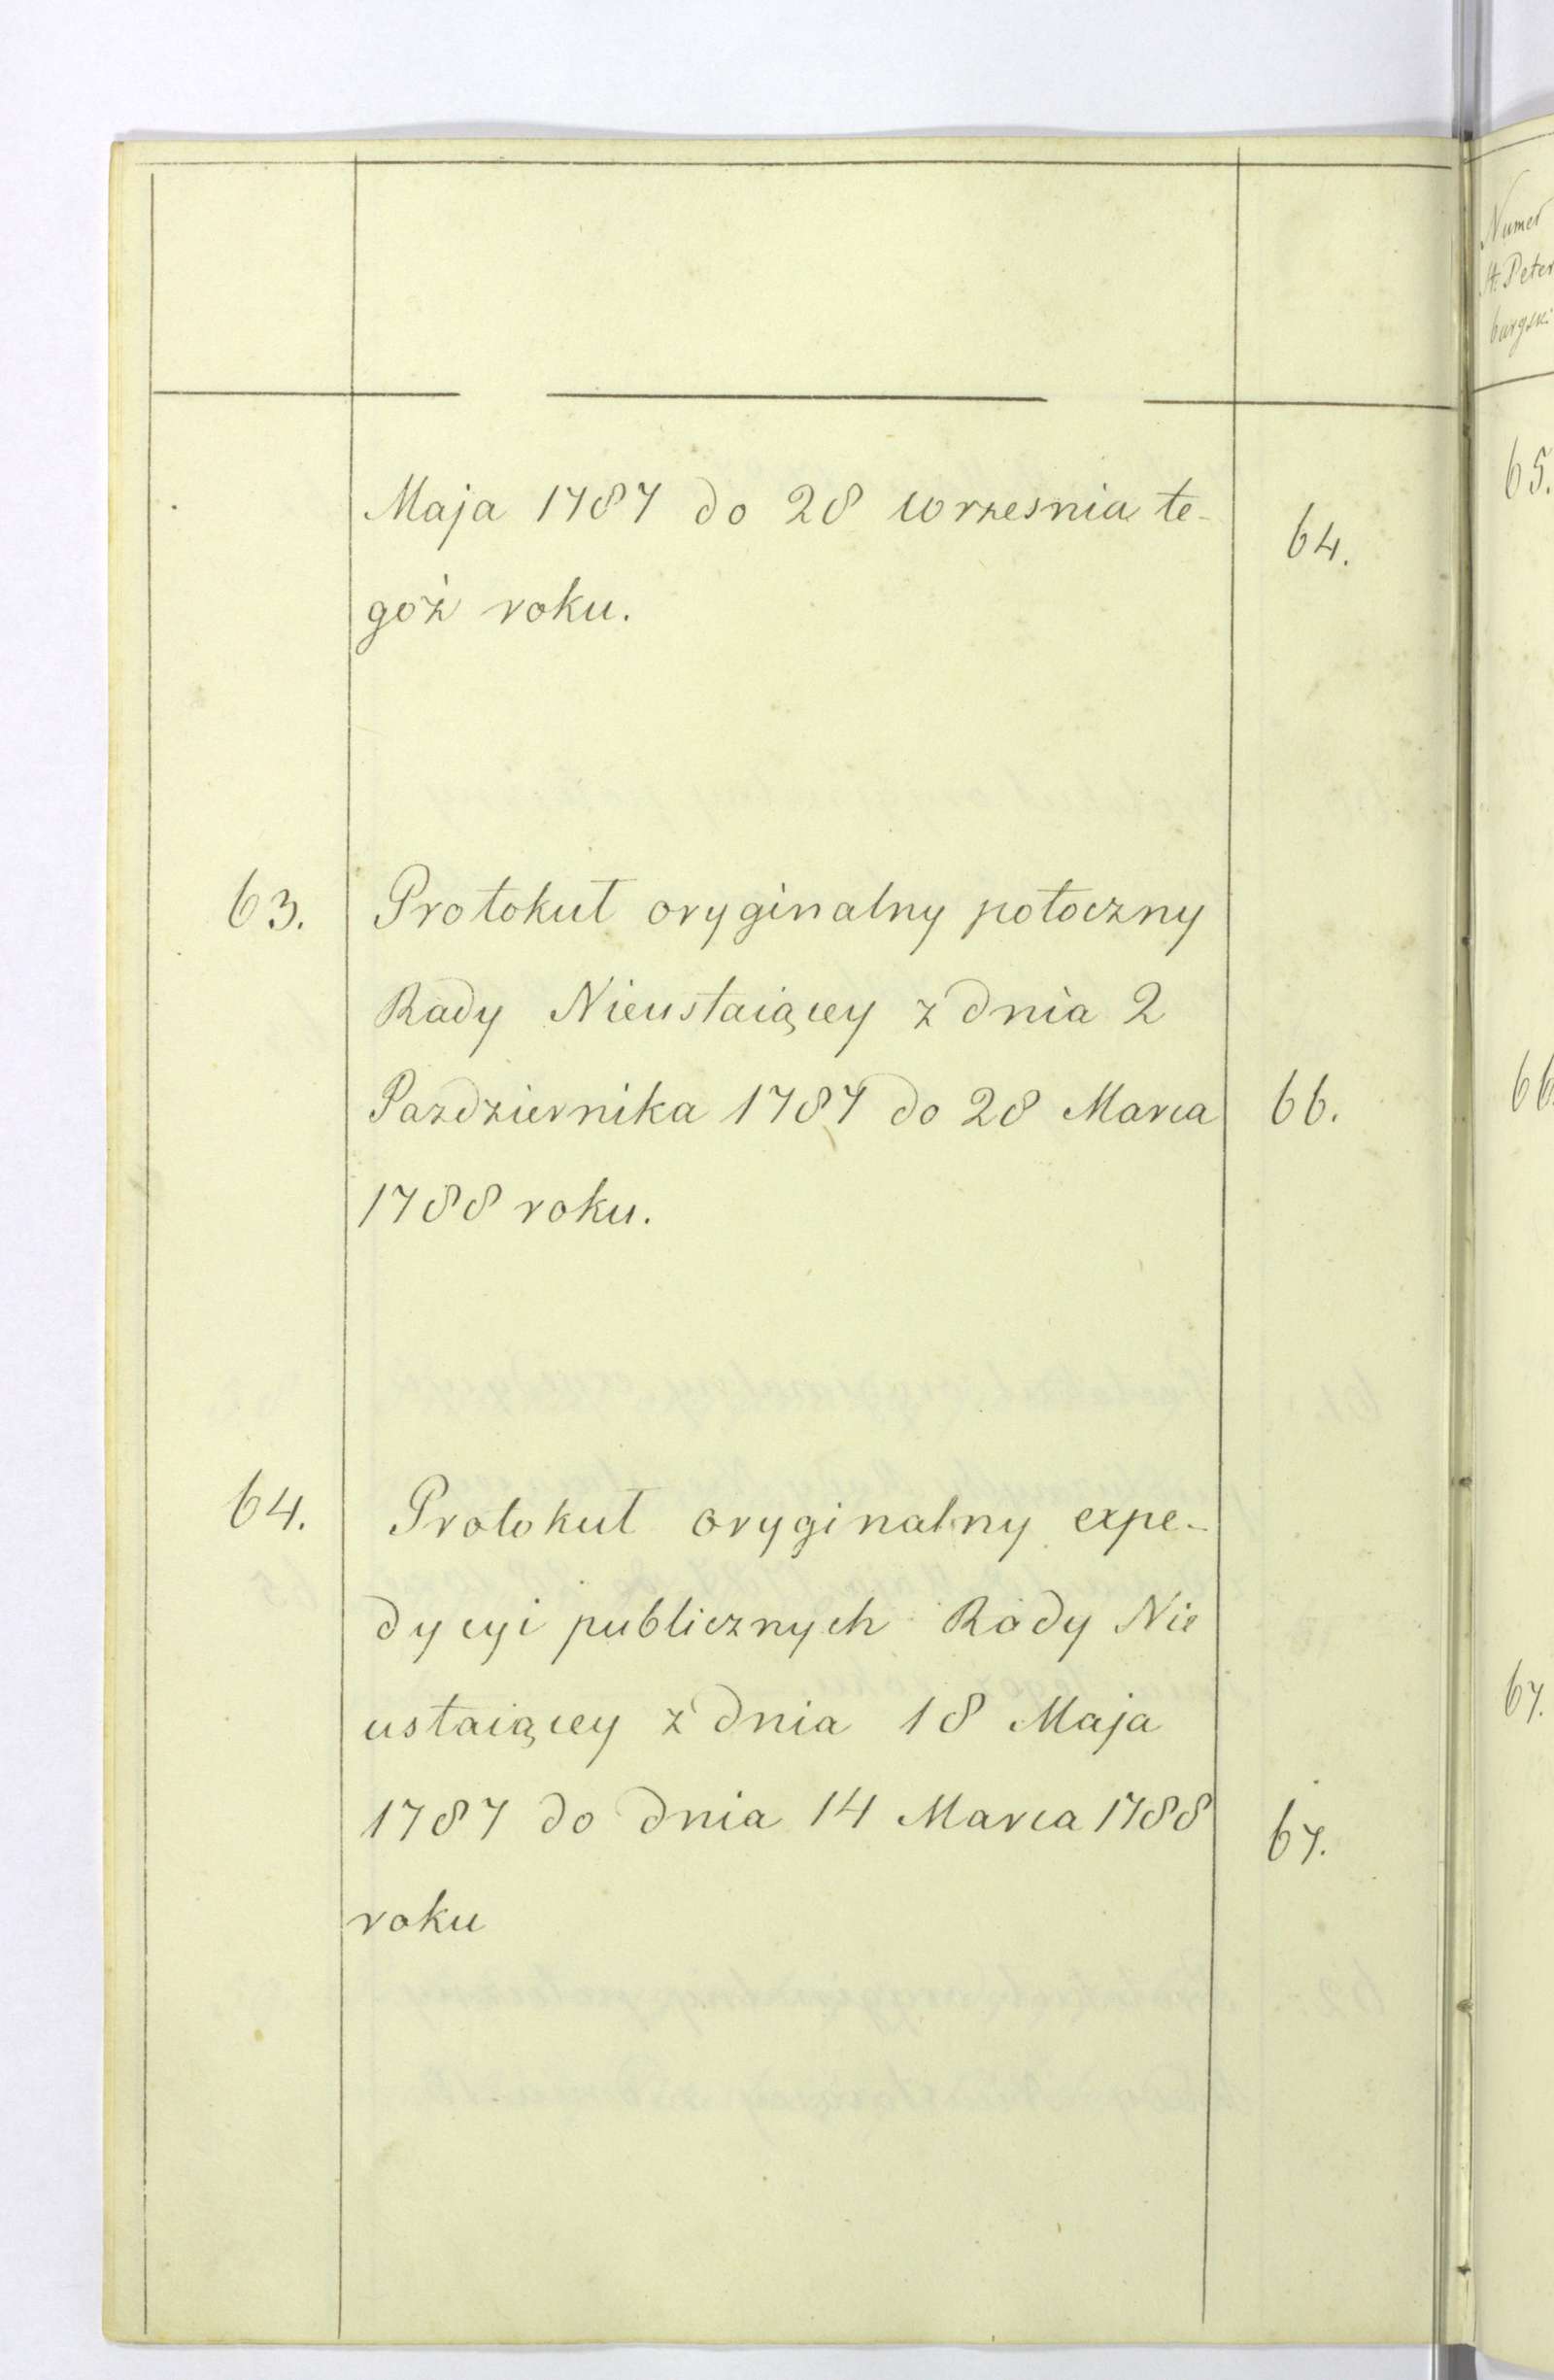 Maja 1787 do 28 wrzesnia te-
goż roku.
64.
63.
Protokuł oryginalny potoczny
Rady Nieustaiącey z dnia 2
Pazdziernika 1787 do 28 Marca
66.
1788 roku.
64.
Protokuł oryginalny expe-
dycyi publicznych Rady Nie
ustaiącey z dnia 18 Maja
1787 do dnia 14 Marca 1788
67.
roku
Numer
St. Peter
burgski
65.
66
67.